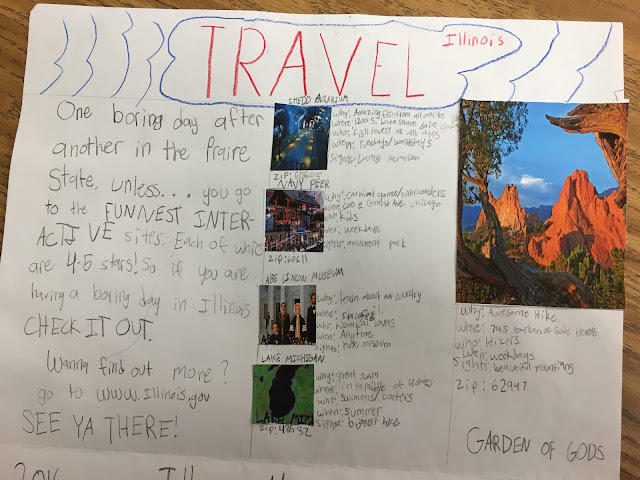 TRAVEL Illinois
One boring day after
another in the Praire
State, unless.... you go
to the FUNNEST INTER-
ACTIVE sites. Each of whic
are 4-5 stars! So if you are
having a boring day in Illinois
CHECK IT OUT.
Wanna find out more?
go to www.Illinois.gov
SEE YA THERE!
SHEDD AQUARIUM
why: Amazing fish from all
where: 1200 S. Lake Shore drive
who: Fish lovers of all ages
when: Tuesdays/
sights: Aquarium
zip: 60605
NAVY PEER
why: Carnival games/rollercoasters
where: 600 E Grand Ave. chicago
who: kids
when: weekdays
sights: amusment park
zip: 60611
ABE LINCON MUSEUM
why: learn about our country
where:
who: historical lovers
when: Anytime
sights: museum
LAKE MICHIGAN
LAKE MIC
why: great swim
where: in the middle of 4 states
who: swimmers/boaters
when: summer
sights: biggest lake
zip: 48632
why: Awesome Hike
where: Garden of Gods
who: Hikers
when: weekdays
sights: beautiful mountians
zip: 62947
GARDEN OF GODS